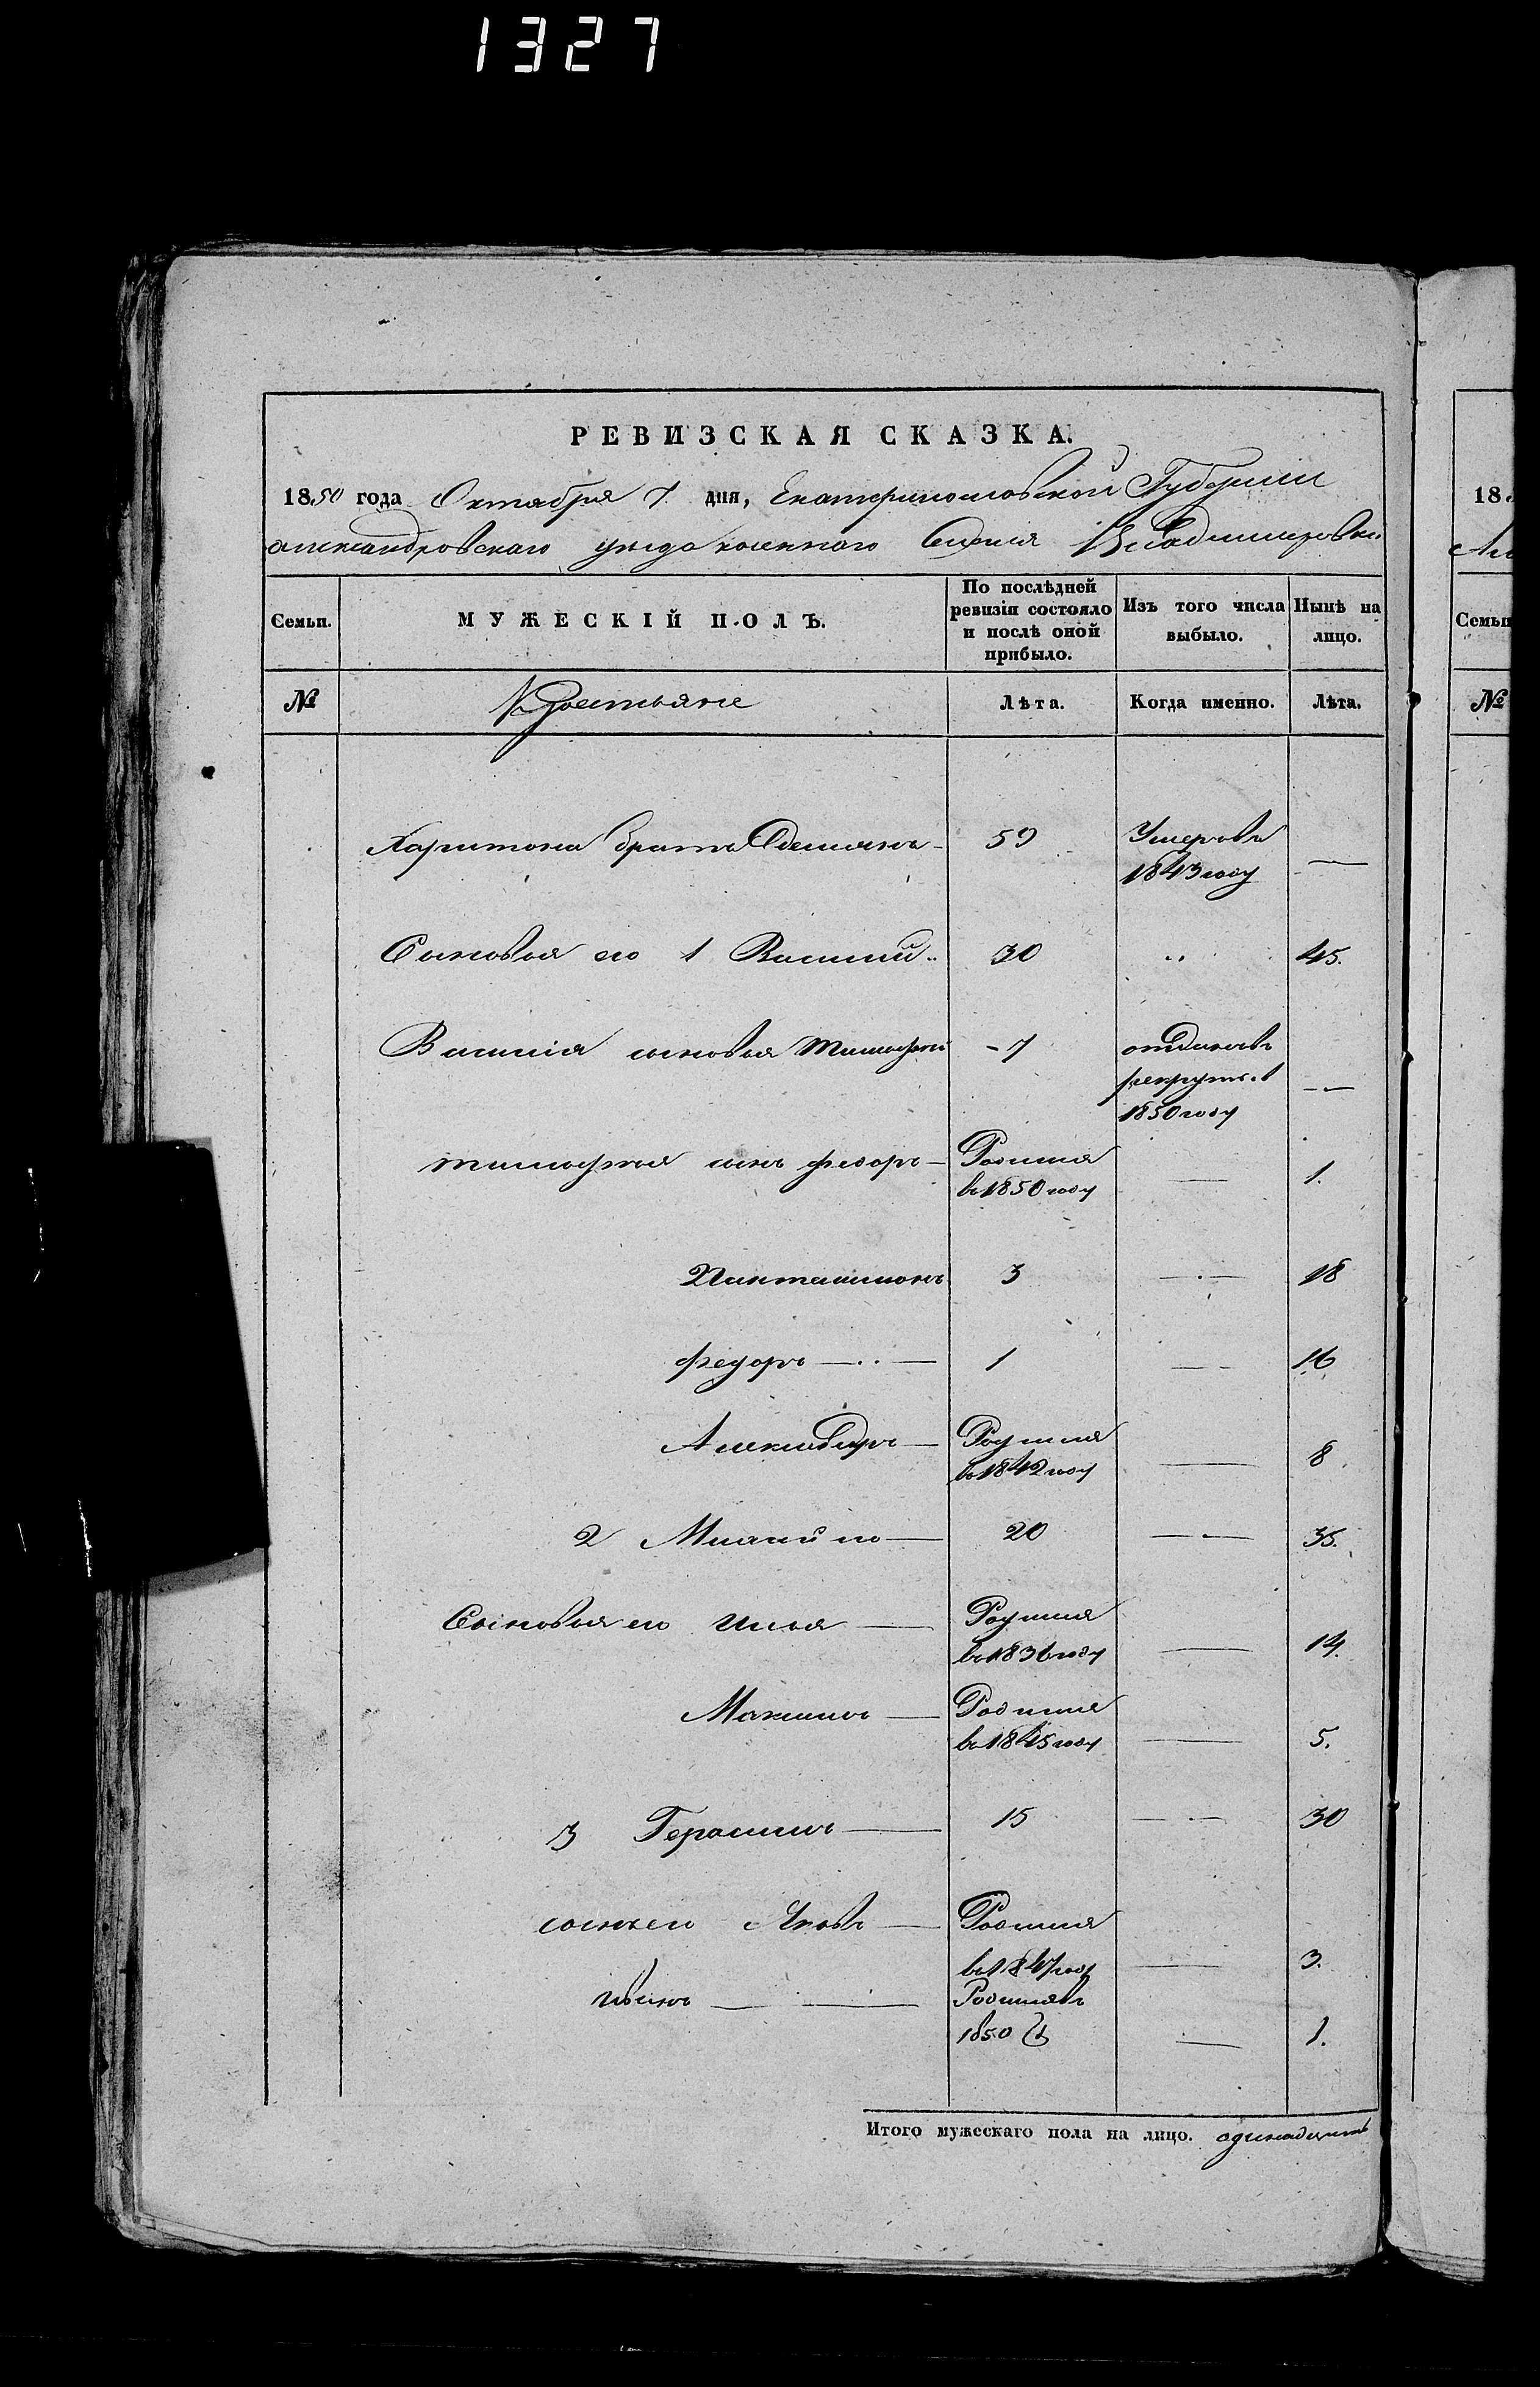 1327
РЕВИЗСКАЯ СКАЗКА.
1850 года Октября 7 дня, Екатеринославской Губернии
александровскаго уезда казеннаго Селенія Владимировки
Семьи. МУЖЕСКІЙ ПОЛЪ. По послѣдней ревизіи состояло и послѣ оной прибыло. Изъ того числа выбыло. Нынѣ на лицо.
№ Крестьяне Лѣта. Когда именно. Лѣта.
Харитона братъ Демьянъ 59 Умеръ въ 1843 году —
Сыновья его 1 Василий 30 " 45.
Василія сыновья Тимофей 7 отданъ въ рекруты в 1850 году —
тимофея сынъ федоръ — Родился в 1850 году — 1.
Пантелимонъ 3 — 18
федоръ — 1 — 16
Александръ — Родился в 1842 году — 8
2 Михайло — 20 — 35.
Сыновья его Илья — Родился в 1836 году — 14.
Максимъ — Родился в 1845 году — 5.
3 Герасимъ — 15 — 30
сынъ его Яковъ — Родился в 1847 году — 3.
Иванъ — Родился въ 1850 — 1.
Итого мужескаго пола на лицо. одинадцать
18
Семьи
№